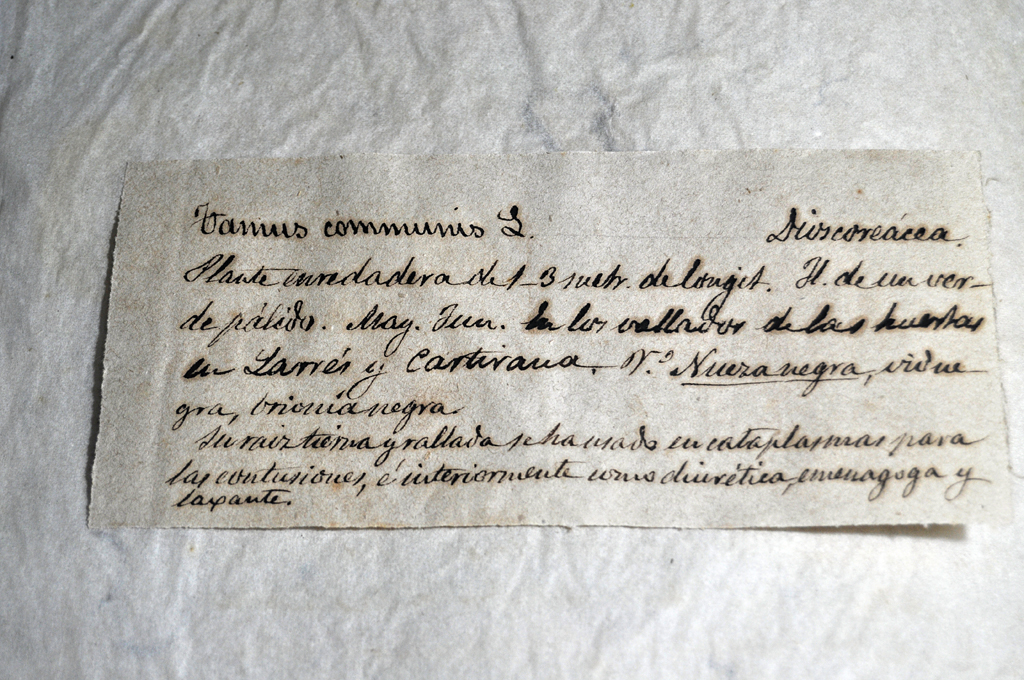 Tamus communis L. Dioscoreácea.
Planta enredadera de 1-3 metr. de longit. Fl. de un ver-
de pálido. May. Jun. En los vallados de las huertas
en Larrés y Cartirana. V.º Nueza negra, vid ne-
gra, brionia negra.
Su raiz tierna y rallada se ha usado en cataplasmas para
las contusiones, é interiormente como diurética, emenagoga y
laxante.